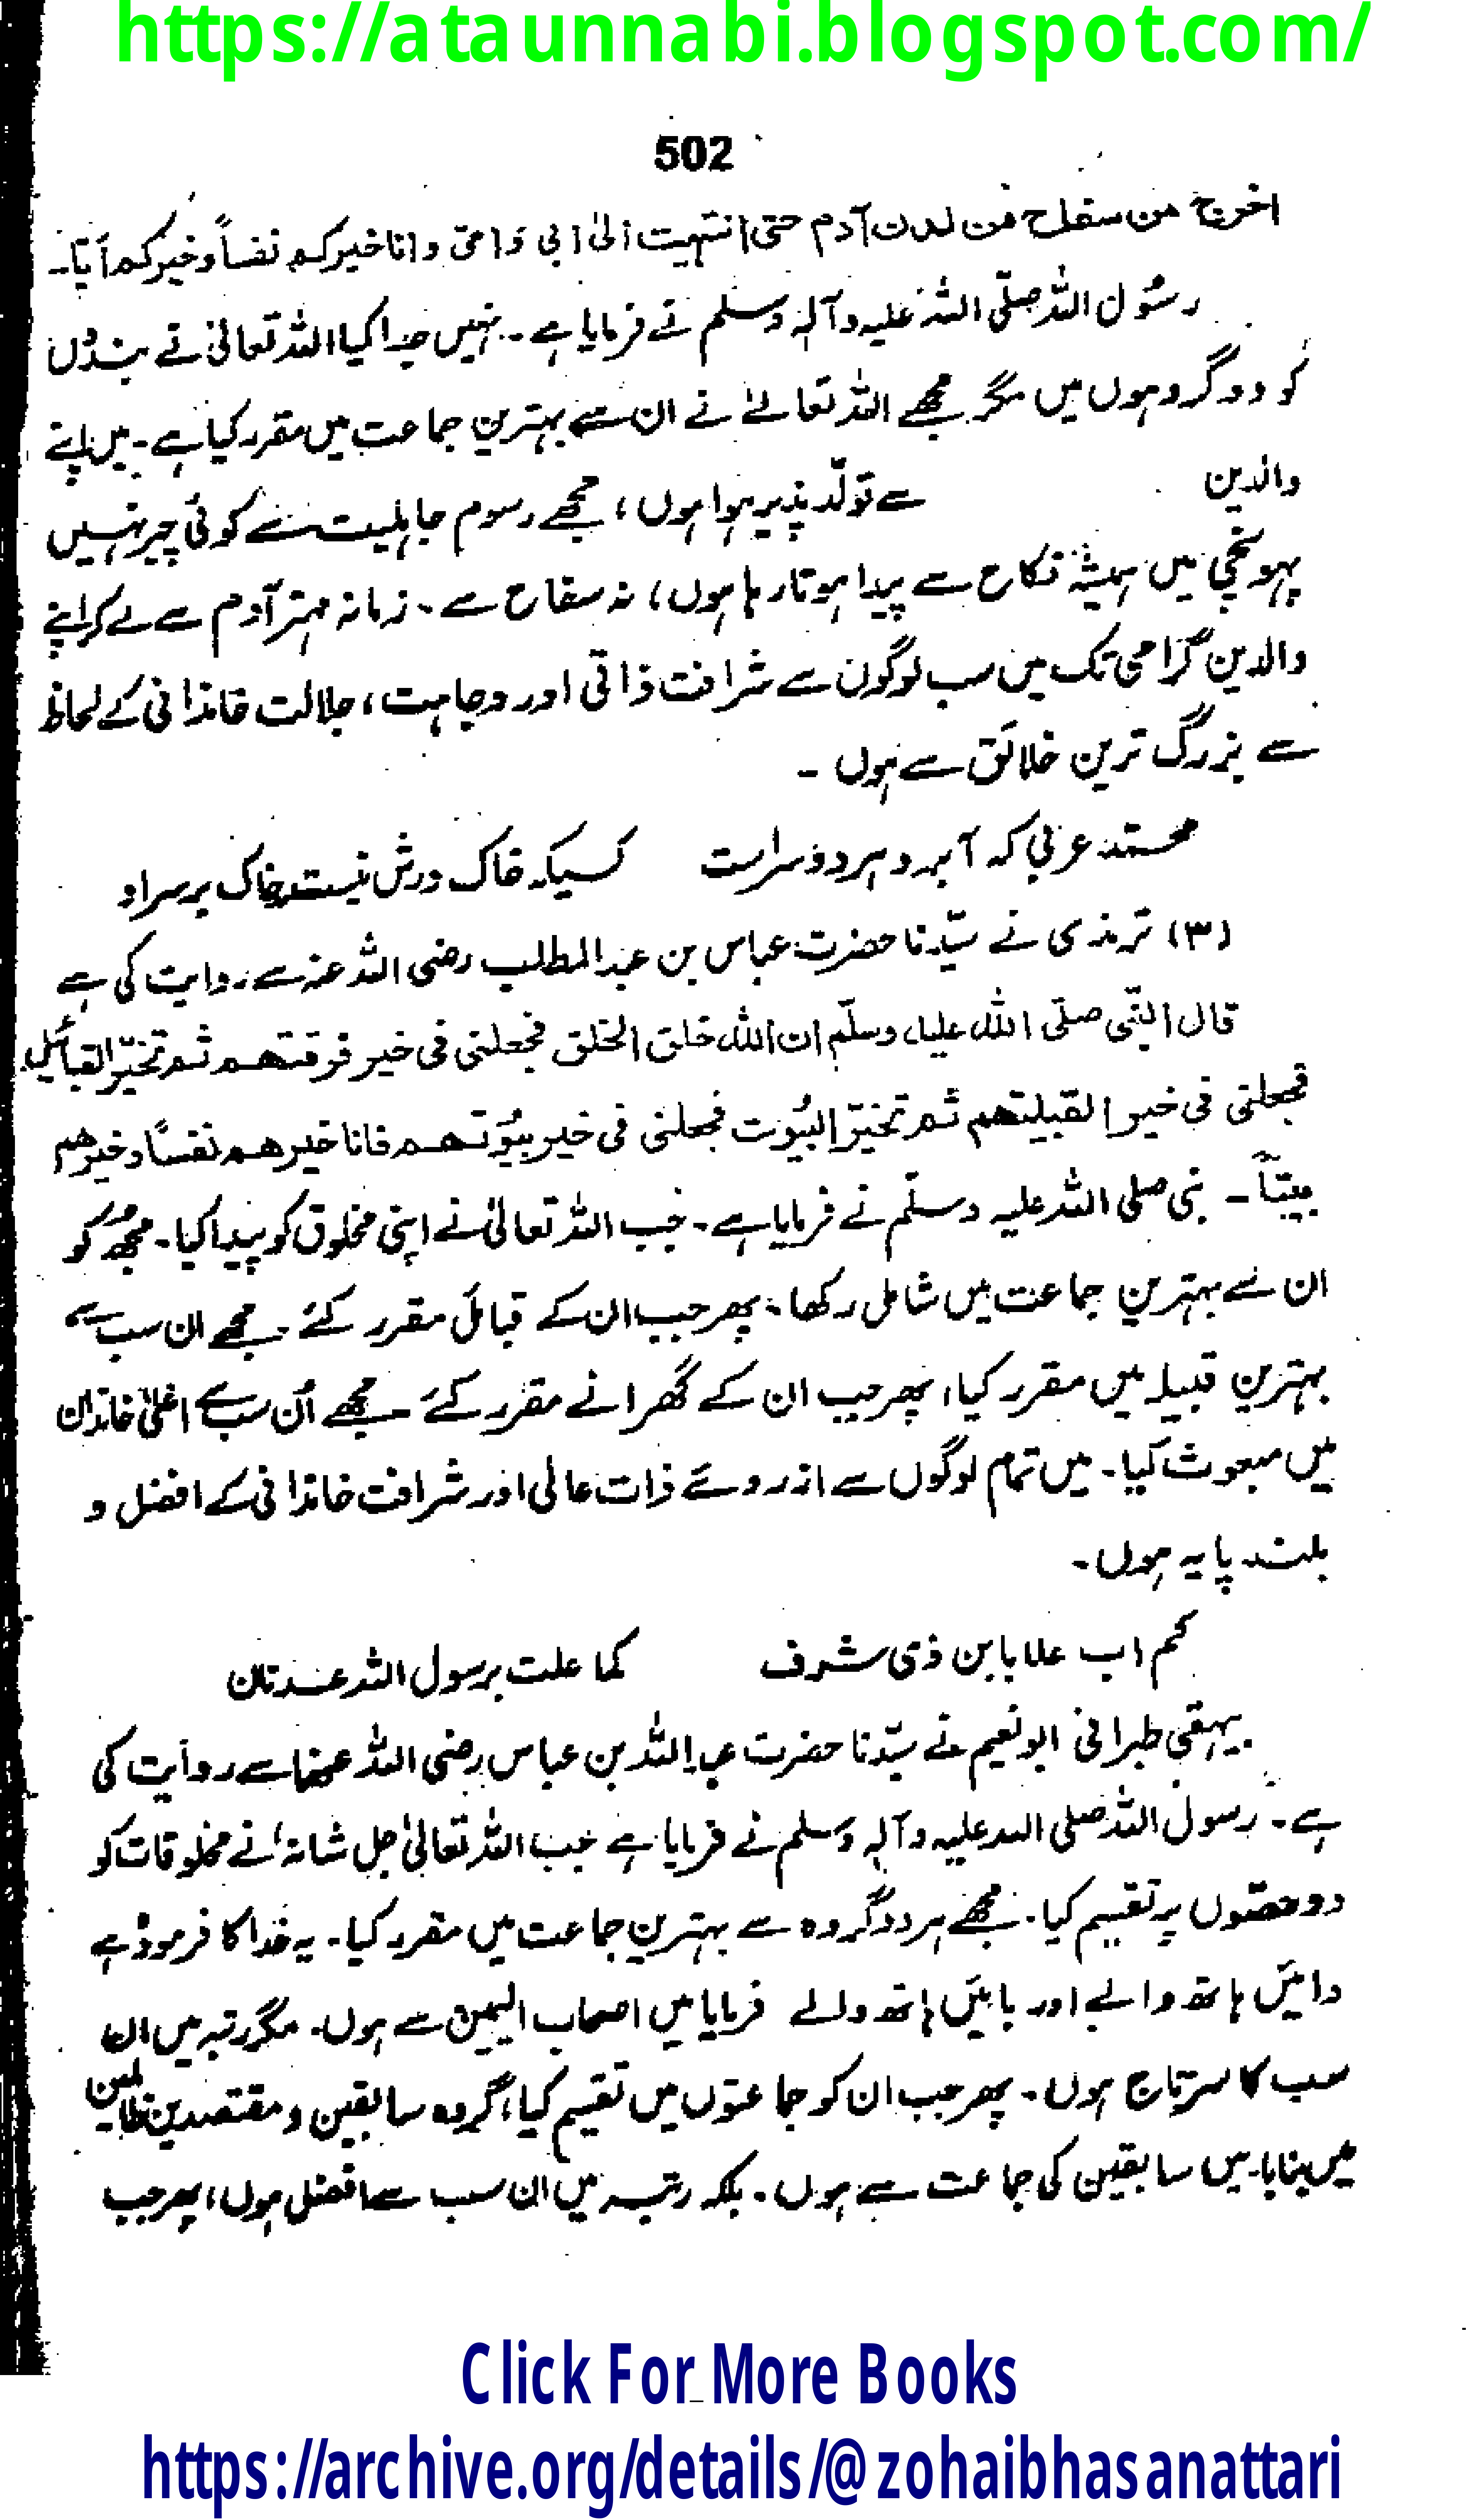 https://ataunnabi.blogspot.com/
502
اخرج من سفاح من لدن آدم حتی انتہیت الیٰ ابی وامی وانا خیرکم نفساً وخیرکم اَبًا۔
رسُول اللہ صلّی اللہ علیہ وآلہٖ وسلم نے فرمایا ہے۔ نہیں جدا کیا اللہ تعالیٰ نے بندوں
کو دو گروہوں میں مگر مجھے اللہ تعالےٰ نے ان سے بہترین جماعت میں مقرر کیا ہے۔ میں اپنے
والدین سے تولّد پذیر ہوا ہوں، مجھے رسوم جاہلیت سے کوئی چیز نہیں
پہونچی میں ہمیشہ نکاح سے پیدا ہوتا رہا ہوں، نہ سفاح سے۔ زمانہ مہتر آدم سے لے کر اپنے
والدین گرامی تک میں سب لوگوں سے شرافت ذاتی اور وجاہت، جلالت خاندانی کے لحاظ
سے بزرگ ترین خلائق سے ہوں ۔
محمّد عربی کہ آبروہردوسراست کسیکہ خاک درش نیست خاک بر سر او
(۳) ترمذی نے سیّدنا حضرت عباس بن عبدالمطلب رضی اللہ عنہ سے روایت کی ہے
قال النّبی صلّی اللہ علیہ وسلّم ان اللہ خلق الخلق فجعلنی فی خیر فرقتھم ثم تخیّر القبائل
فجعلنی فی خیر القبیلتھم ثم تخیّر البُیوت فجعلنی فی خیر بیُوتھم فانا خیرھم نفساً وخیرھم
بیتاً ۔ نبی صلی اللہ علیہ وسلّم نے فرمایا ہے۔ جب اللہ تعالیٰ نے اپنی مخلوق کو پیدا کیا۔ مجھ کو
ان سے بہترین جماعت میں شامل رکھا۔ پھر جب ان کے قبائل مقرر کئے مجھے ان سب سے
بہترین قبیلہ میں مقرر کیا، پھر جب ان کے گھرانے مقرر کئے مجھے اُن سب سے اعلیٰ خاندان
میں مبعوث کیا۔ میں تمام لوگوں سے ازروئے ذات عالی اور شرافت خاندانی کے افضل و
بلند پایہ ہوں۔
کم اب علا بابن ذی شرف کما علت برسول اللہ عدنان
بیہقی طبرانی ابونعیم نے سیّدنا حضرت عبداللہ بن عباس رضی اللہ عنہما سے روایت کی
ہے۔ رسول اللہ صلی اللہ علیہ وآلہٖ وسلم نے فرمایا ہے جب اللہ تعالیٰ جل شانہٗ نے مخلوقات کو
دو حصّوں پر تقسیم کیا۔ مجھے ہر دو گروہ سے بہترین جماعت میں مقرر کیا۔ یہ خدا کا فرمودہ ہے
دائیں ہاتھ والے اور بائیں ہاتھ والے فرمایا میں اصحاب الیمین سے ہوں۔ مگر رتبہ میں ان
سب کا سرتاج ہوں۔ پھر جب ان کو جماعتوں میں تقسیم کیا، گروہ سابقین و مقتصدین ظالمین
میں بنایا۔ میں سابقین کی جماعت سے ہوں۔ بلکہ رتبہ میں ان سب سے افضل ہوں، پھر جب
Click For More Books
https://archive.org/details/@zohaibhasanattari